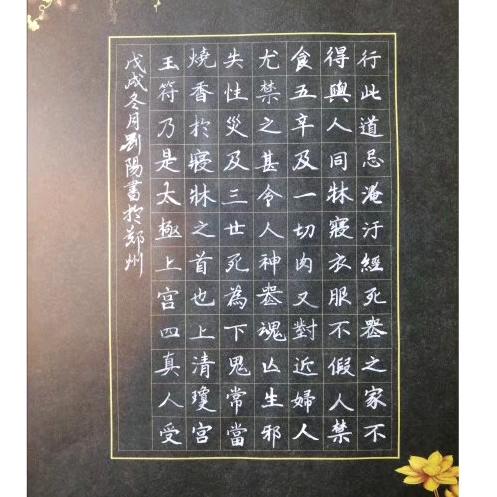 行此道忌淹汙經死喪之家不
得與人同牀寢衣服不假人禁
食五辛及一切肉又對近婦人
尤禁之甚令人神喪魂亡生邪
失性災及三世死為下鬼常當
燒香於寢牀之首也上清瓊宮
玉符乃是太極上宮四真人受
戊戌冬月刘陽書於郑州